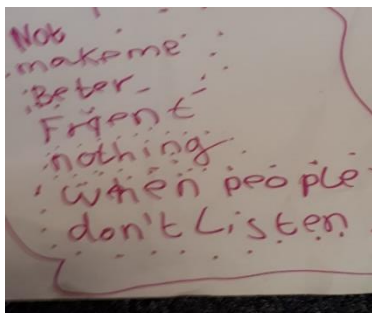 Not
makeme
Beter
Frient
nothing
when people
don't Listen